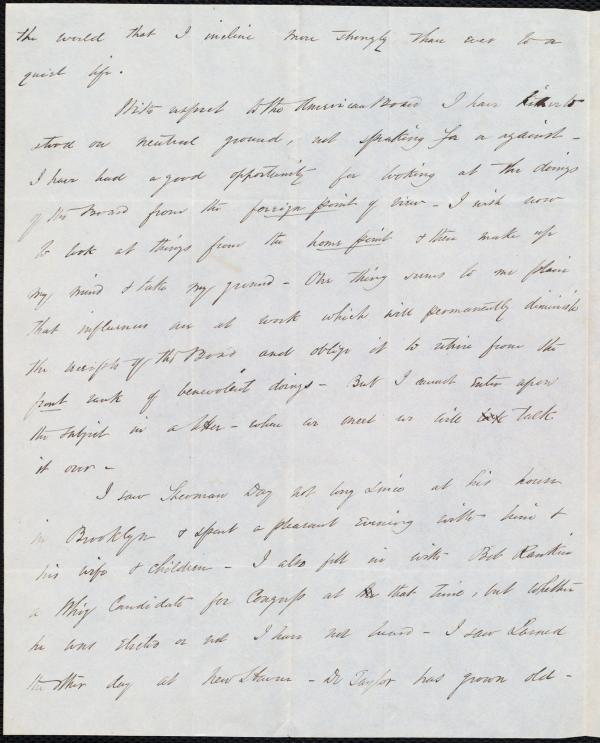 the world that I incline more strongly than ever to a
quiet life.
With respect to the American Board I have hitherto
stood on neutral ground, not speaking for or against –
I have had a good opportunity for looking at the doings
of the Board from the foreign point of view – I wish now
to look at things from the home point & then make up
my mind & take my ground – One thing seems to me plain
that influences are at work which will permanently diminish
the receipts of the Board and oblige it to retire from the
front rank of benevolent doings – But I cannot enter upon
the subject in a letter – when we meet we will talk
it over –
I saw Sherman Day not long since at his house
in Brooklyn & spent a pleasant evening with him &
his wife & children – I also fell in with Bob Rankin
a Whig Candidate for Congress at that time, but whether
he was elected or not I have not heard – I saw Larned
the other day at New Haven – Dr Taylor has grown old –